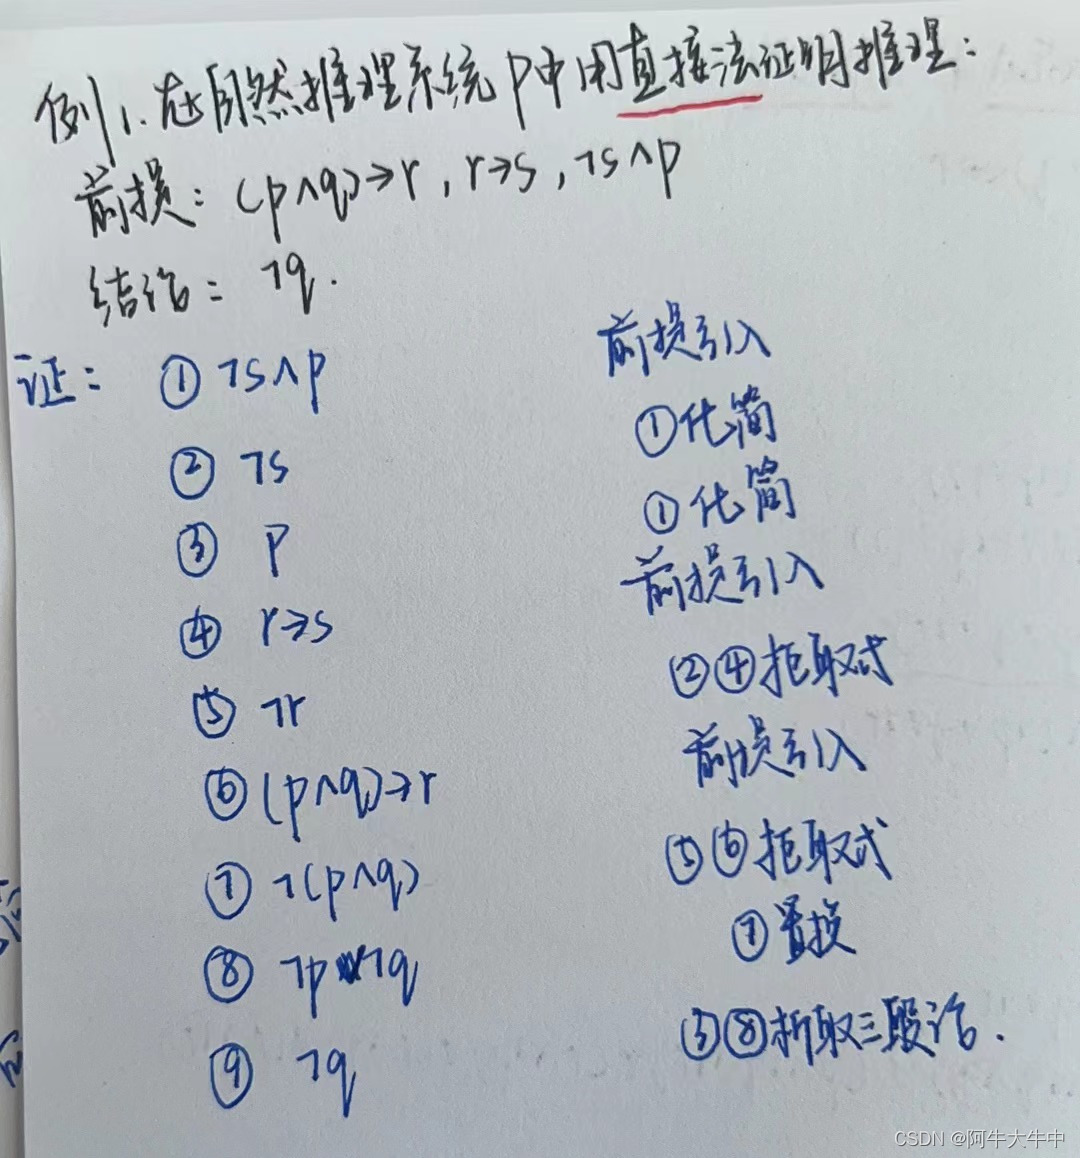 例1.在自然推理系统P中用直接法证明推理:
前提:(p∧q)→r,r→s,¬s∧p
结论:¬q.
证: ① ¬s∧p 前提引入
② ¬s ①化简
③ p ①化简
④ r→s 前提引入
⑤ ¬r ②④拒取式
⑥ (p∧q)→r 前提引入
⑦ ¬(p∧q) ⑤⑥拒取式
⑧ ¬p∨¬q ⑦置换
⑨ ¬q ③⑧析取三段论.
CSDN @阿牛大牛中